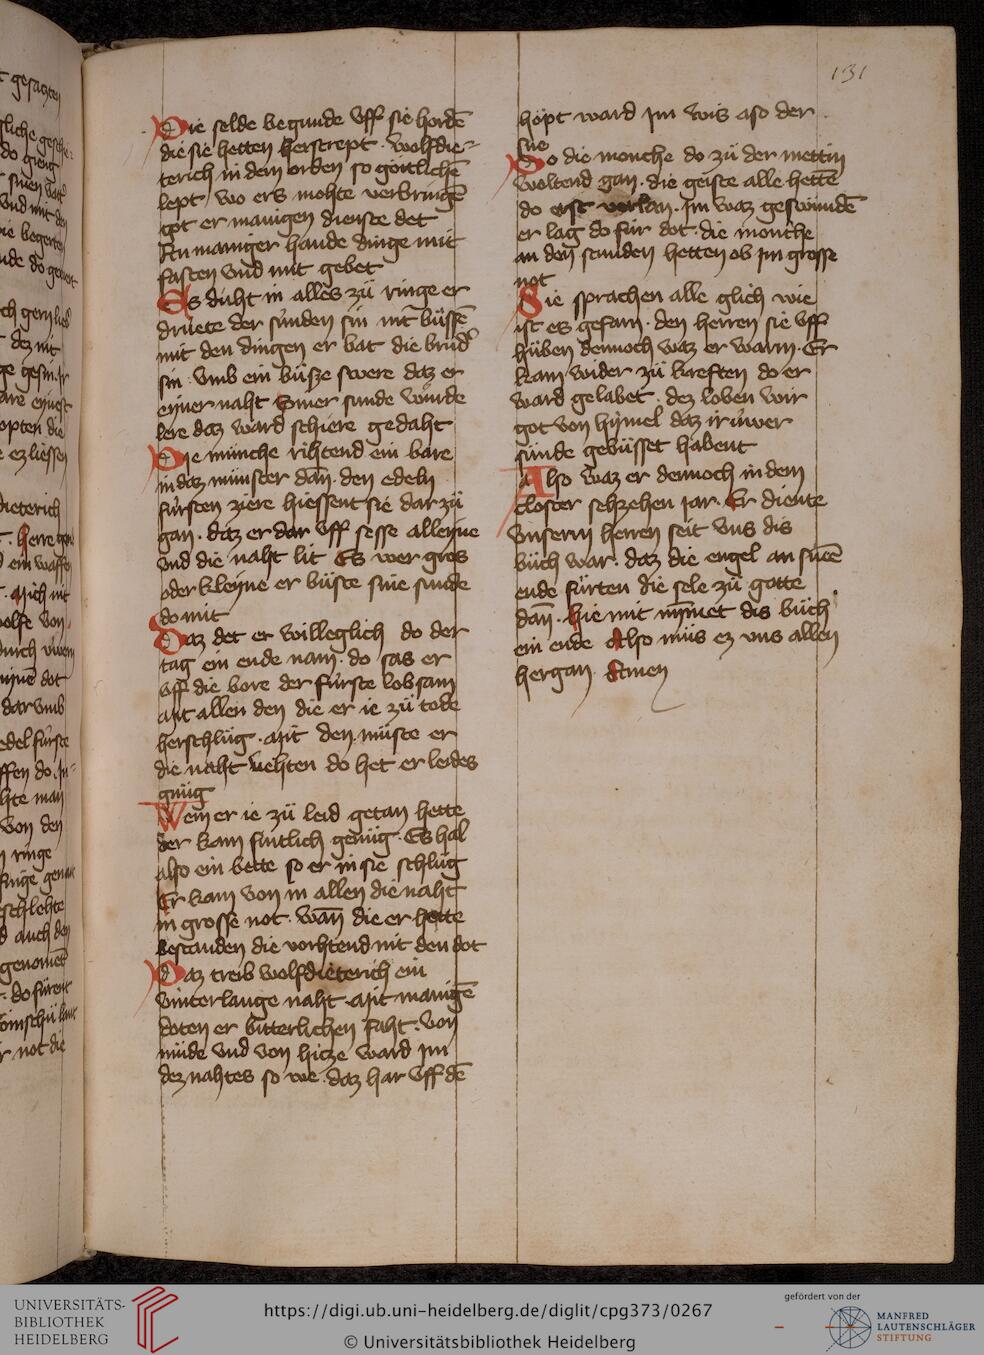 131
Die selde begunde vff sie hordē
die sie hetten herstrept · wolfdie-
terich in dem orden so göttlichē
lept wo ers mohte verbringē
got er manigen dienste det
An maniger hande dinge mit
fasten vnd mit gebet
Es duht in alles zů ringe er
druete der sünden sin mt büssē
mit den dingen er bat die brud᷑
sin · vmb ein büsze swere daz er
eyner naht syner sunde würde
lere daz ward schiere gedaht
Die münche rihtend ein bare
in daz münster dan̄ · den edeln
fürsten ziere hiessent sie dar zů
gan · daz er dar vff sesse alleyne
vnd die naht lit Es wer gros
oder kleyne er büste sine sunde
do mit
Daz det er williglich do der
tag ein ende nam · do sas er
vff die bore der fürste lobsam
Mit allen den die er ie zů tode
herschlůg · Mit den muste er
die naht vehten do het er leides
gnůg
Wem er ie zů leid getan hette
der kam sintlich genůg · Es hal
also ein bette so er in sie schlůg
Er kam von in allen die naht
in grosse not · wan̄ die er hette
bestanden die vorhtend nit den dot
Daz treib wolfdieterich ein
winterlange naht · Mit manigē
doten er bitterlichen faht · von
müde vnd von hitze ward jm
dez nahtes so we · daz har vff dē
höpt ward jm wis aso der
sne
Do die monche do zů der mettin
woltend gan · die geiste alle hettē
do erst verlan · jm waz geswündē
er lag do für dot · die monche
an den stunden hetten ob jm grosse
not
Sie sprachen alle glich wie
ist es gefarn · den herren sie vff
hüben dennoch waz er warm · Er
kam wider zů kreften do er
ward gelabet · dez loben wir
got von hymel daz ir üwer
sünde gebüsset habent
Also waz er dennoch in dem
closter sehzehen jar · Er diente
vnserm herren seit vns dis
bůch war · daz die engel an sinē
ende fürten die sele zů gotte
dan̄ · Hie mit nymet dis bůch
ein ende Also můs ez vns allen
hergan · Amen
UNIVERSITÄTS-
BIBLIOTHEK
HEIDELBERG
https://digi.ub.uni-heidelberg.de/diglit/cpg373/0267
© Universitätsbibliothek Heidelberg
gefördert von der
MANFRED
LAUTENSCHLÄGER
STIFTUNG